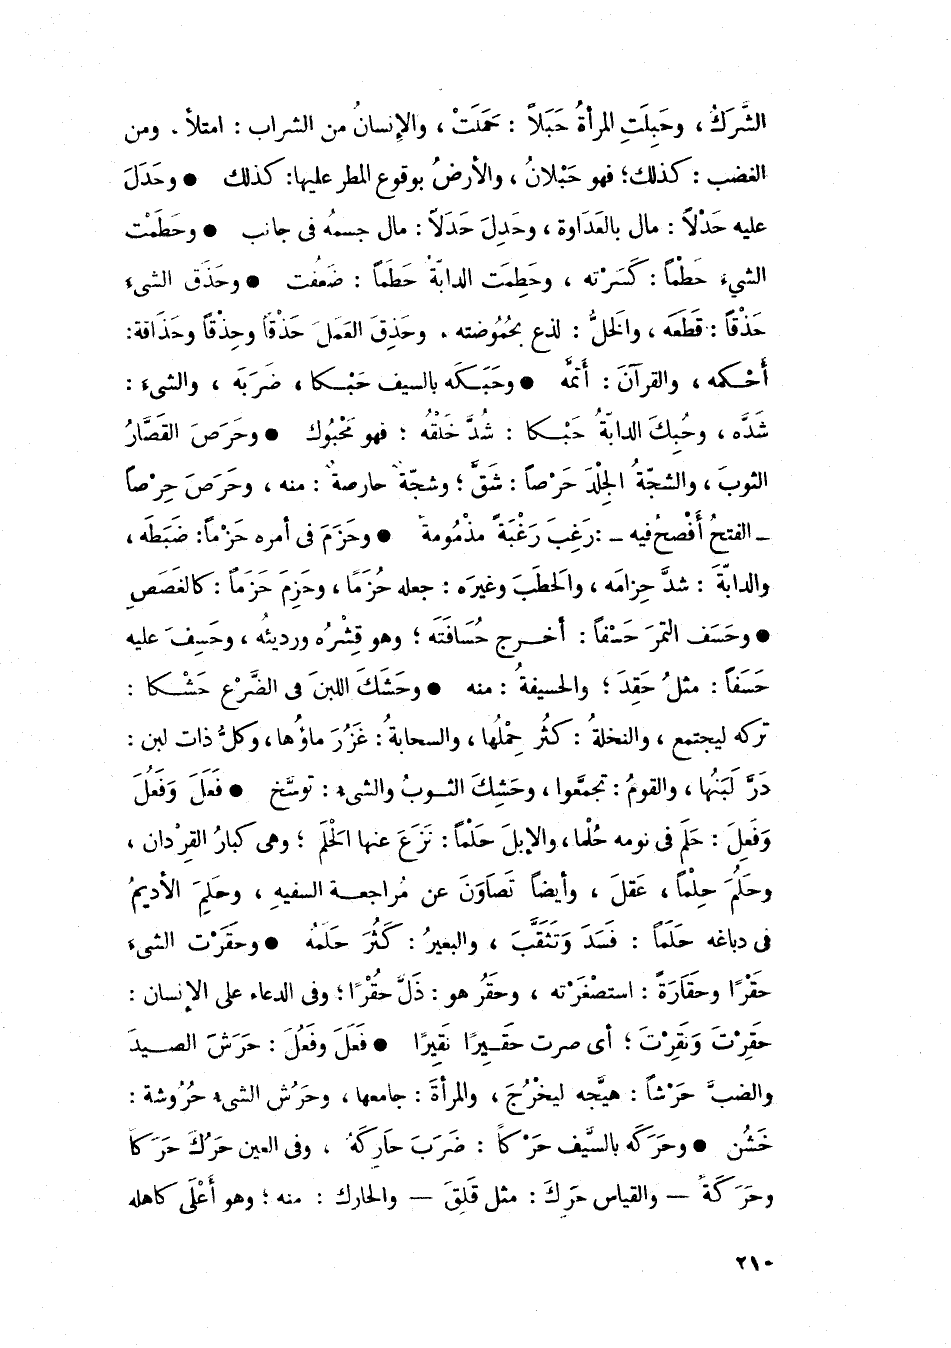 الشَّرَكُ ، وحَبِلَتِ المرأةُ حَبَلاً : حَمَلَتْ ، والإِنسانُ من الشراب : امتلأ . ومن
الغضب : كذلك ؛ فهو حَبْلانُ ، والأرضُ بوقوع المطر عليها : كذلك ● وحَدَلَ
عليه حَدْلاً : مال بالعَدَاوة ، وحَدِلَ حَدَلاً : مال جسمُه فى جانب ● وحَطَمْت
الشيءَ حَطْماً : كَسَرْته ، وحَطِمَت الدابّةُ حَطَماً : ضَعُفت ● وحَذَق الشىءَ
حَذْقاً : قَطَعَه ، والخلُّ : لذع بحُمُوضته . وحَذِقَ العَمَلَ حَذْقاً وحِذْقاً وحَذَاقة :
أَحْكمه ، والقرآنَ : أَتمَّه ● وحَبَكَه بالسيف حَبْكا ، ضَرَبَه ، والشىءَ :
شَدَّه ، وحُبِكَ الدابّةُ حَبْكا : شُدَّ خَلْقُه : فهو مَحْبُوك ● وحَرَصَ القَصَّارُ
الثوبَ ، والشجّةُ الجِلْدَ حَرْصاً : شَقَّ ؛ وشجّةٌ حارصةٌ : منه ، وحَرَصَ حِرْصاً
ـ الفتحُ أَفْصحُ فيه ـ : رَغِبَ رَغْبَةً مذْمُومةً ● وحَزَمَ فى أمره حَزْماً : ضَبَطَه ،
والدابّةَ : شدَّ حِزامَه ، والحَطَبَ وغيرَه : جعله حُزَمًا ، وحَزِمَ حَزَماً : كالغَصَصِ
● وحَسَف التمرَ حَسْفاً : أخرج حُسَافَتَه ؛ وهو قِشْرُه ورديئُه ، وحَسِفَ عليه
حَسَفاً : مثلُ حَقِدَ ؛ والحسيفةُ : منه ● وحَشَكَ اللبنَ فى الضَّرْعِ حَشْكا :
تركه ليجتمع ، والنخلةُ : كثُر حِمْلُها ، والسحابةُ : غَزُرَ ماؤُها ، وكلُّ ذات لبن :
دَرَّ لَبَنُها ، والقومُ : تجمَّعوا ، وحَشِكَ الثوبُ والشىء : توسَّخ ● فَعَلَ وَفَعُلَ
وَفَعِلَ : حَلَم فى نومه حُلْما ، والإبلَ حَلْماً : نَزَعَ عنها الحَلَمَ ؛ وهى كبارُ القِرْدان ،
وحَلُمَ حِلْماً ، عَقلَ ، وأيضاً تَصَاوَنَ عن مُراجعة السفيهِ ، وحَلِمَ الأديمُ
فى دباغه حَلَماً : فَسَدَ وَتَثَقَّبَ ، والبعيرُ : كَثُرَ حَلَمُه ● وحقَرْت الشىءَ
حَقْرًا وحَقَارَةً : استصْغَرْته ، وحقُر هو : ذَلَّ حُقْرًا ؛ وفى الدعاء على الإنسان :
حقِرْتَ وَنَقِرْتَ ؛ أى صرت حَقيرًا نَقِيرًا ● فَعَلَ وفَعُلَ : حَرَشَ الصيدَ
والضبَّ حَرْشاً : هيَّجه ليخْرُجَ ، والمرأةَ : جامعها ، وحَرُش الشىء حُرُوشة :
خَشُن ● وحَرَكَه بالسَّيف حَرْكاً : ضَرَبَ حَارِكَهُ ، وفى العين حَرُكَ حَرَكا
وحَرَكَةً — والقياس حَرِكَ : مثل قَلِقَ — والحارك : منه ؛ وهو أَعْلَى كاهله
٢١٠